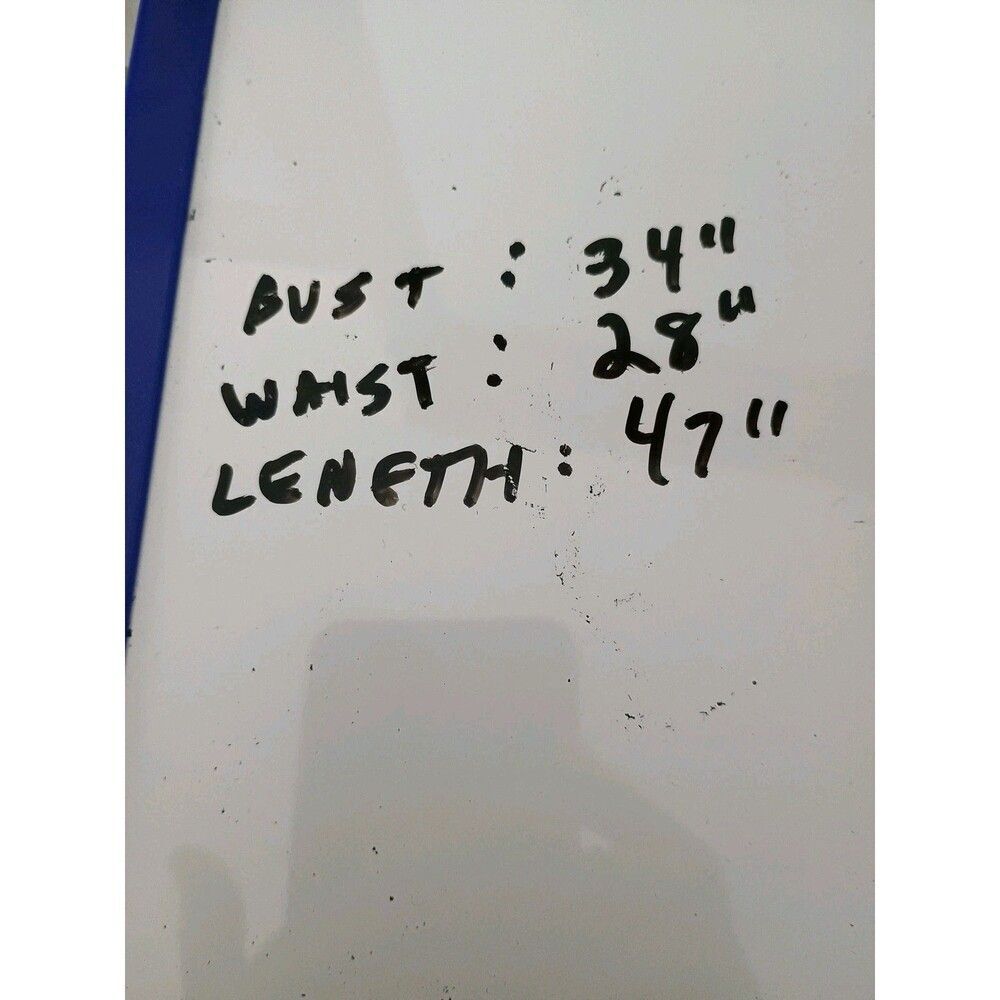 BUST : 34"
WAIST : 28"
LENGTH : 47"